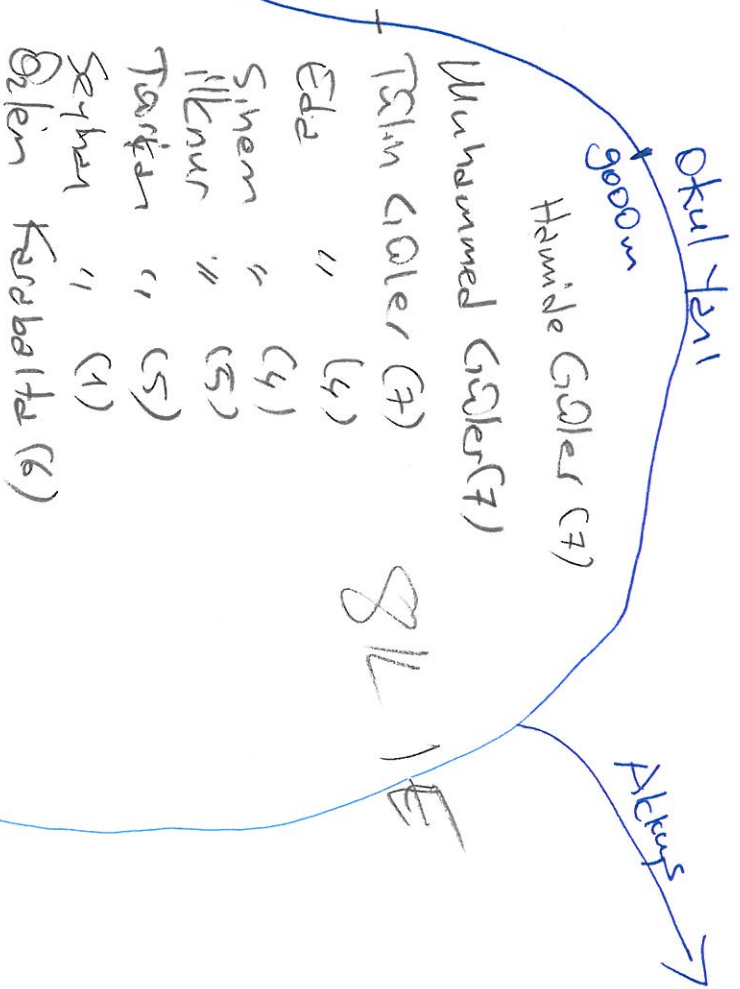 Okul Yanı
9000m
Hamide Güler (7)
Muhammed Güler (7)
Tülin Güler (7)
Eda " (4)
Sinem " (4)
İlknur " (5)
Tarkan " (5)
Seyhan " (1)
Özlem Karabalta (6)
8K 1E
Akkuş